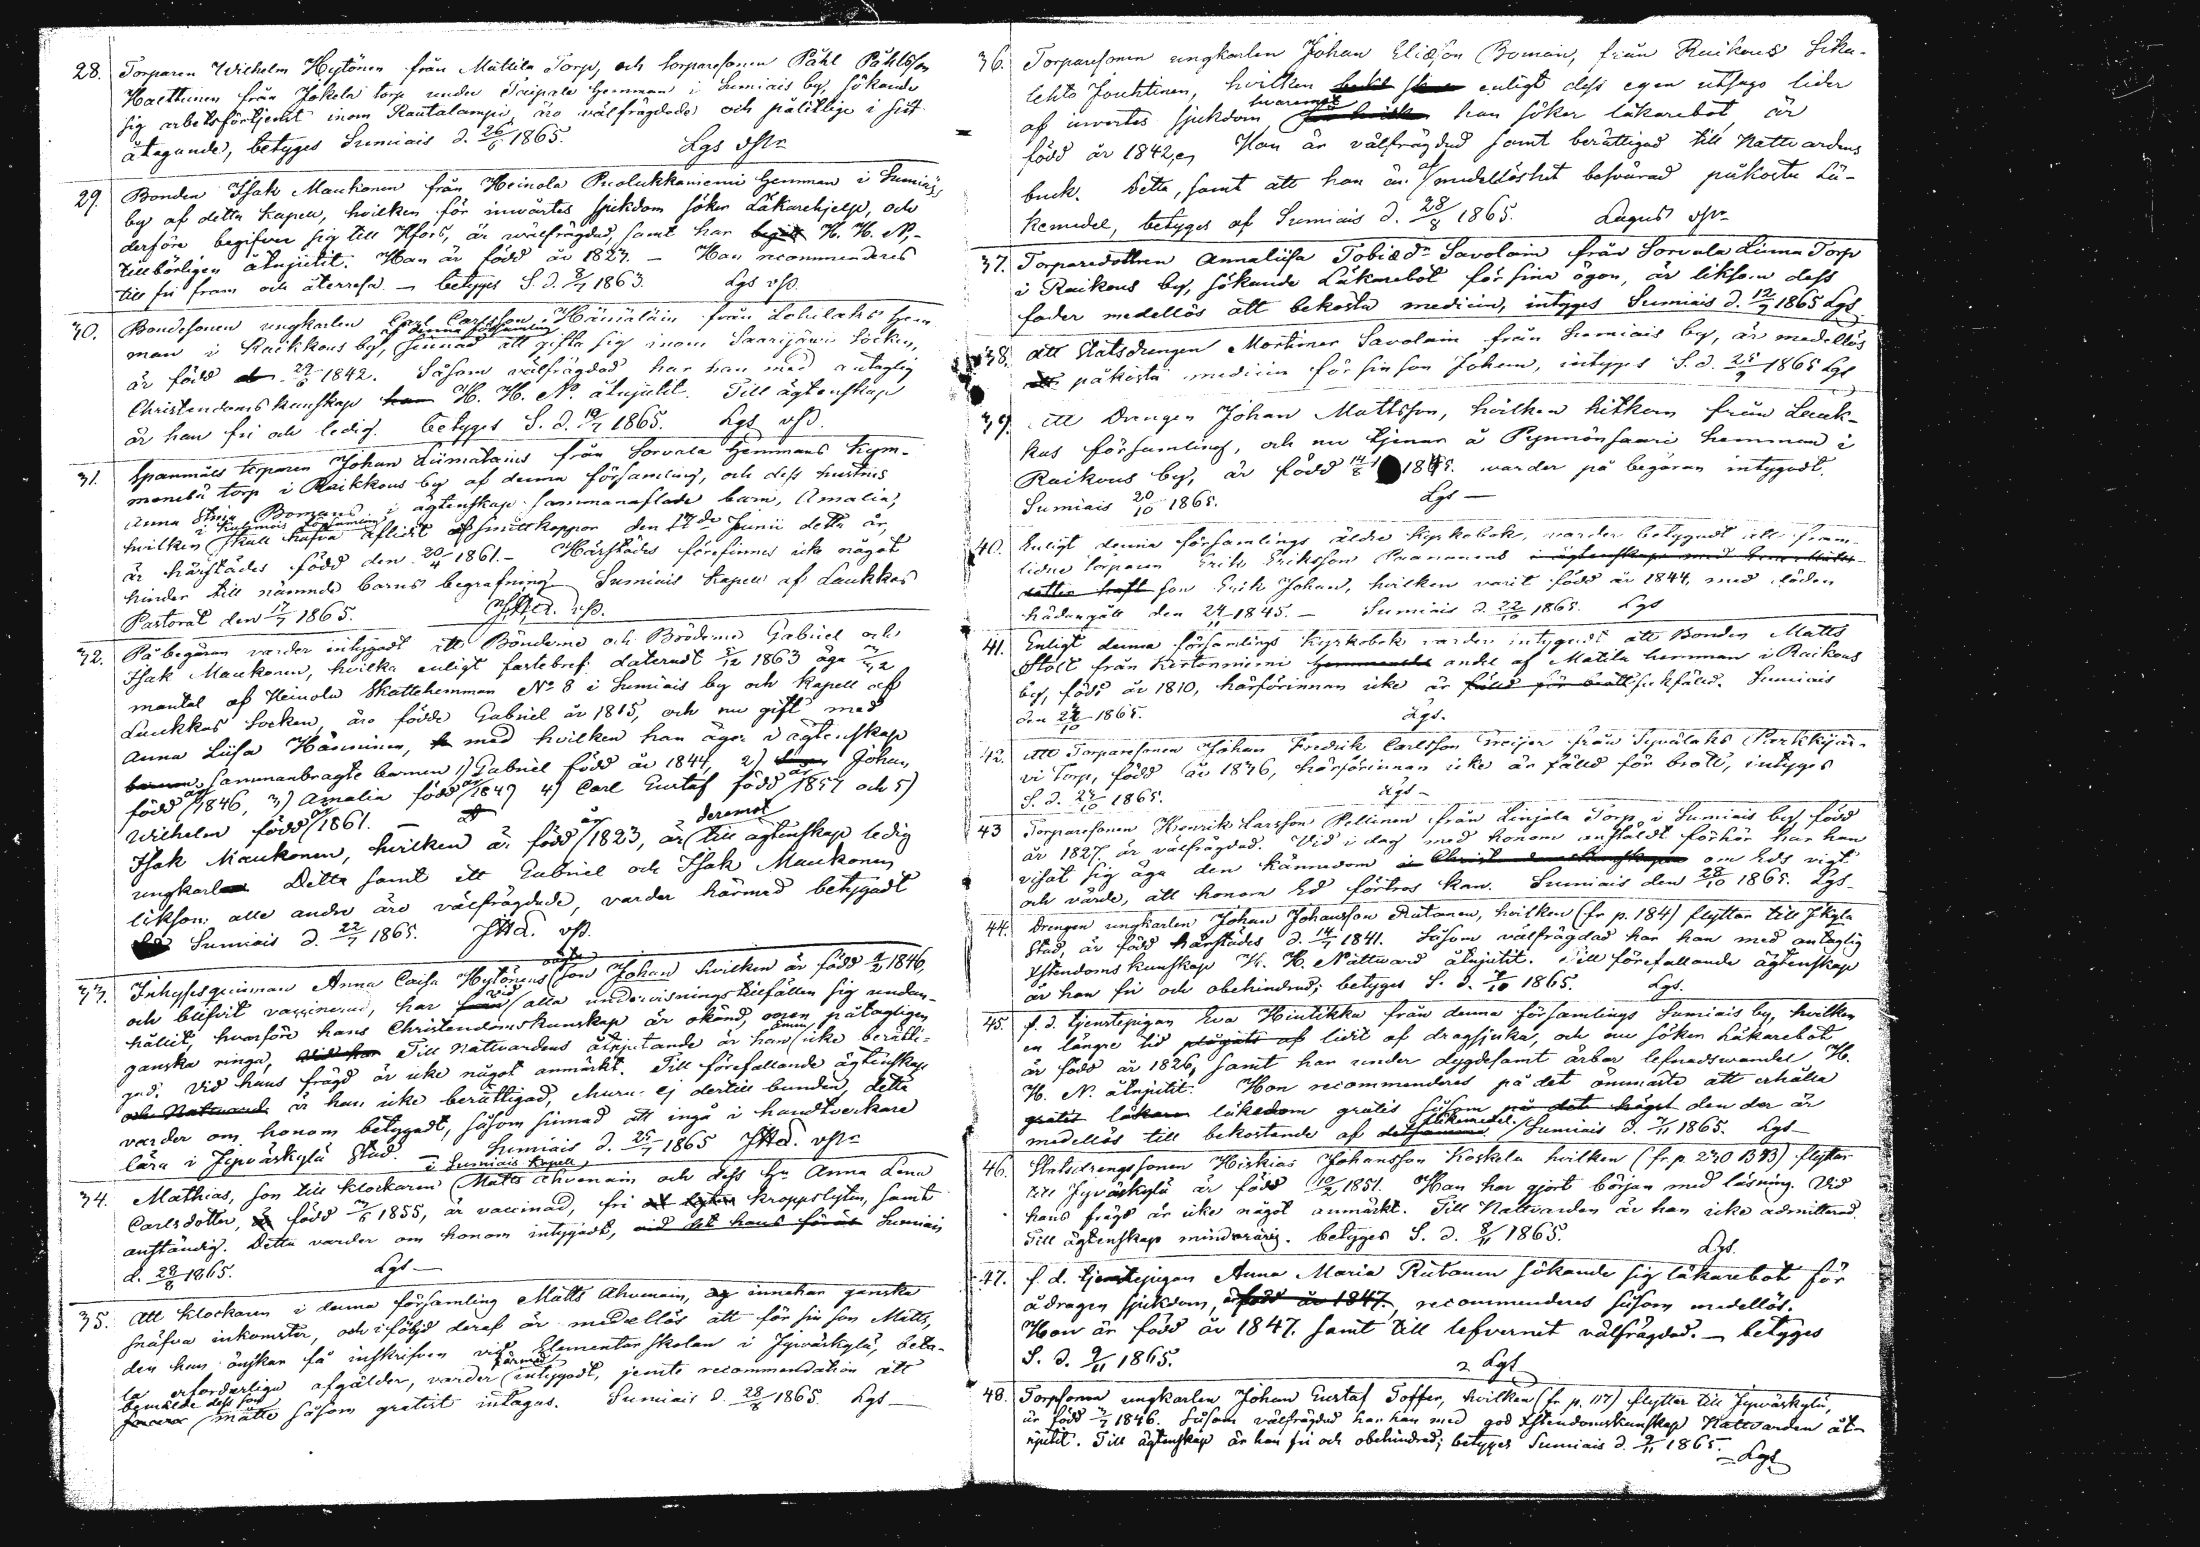 28. Torparen Wilhelm Hytönen från Mattila Torp, och torparesonen Påhl Påhlsson
Haettunen från Jokela torp under Taipale Hemman i Sumiais by, sökande
sig arbetsförtjenst inom Rautalampi, äro välfrägdade och pålitlige i sitt
åtagande, betyges Sumiais d. 26/6 1865. Lgs vpr
29. Bonden Isak Maukonen från Heinola Puolukkaniemi Hemman i Sumiais
by af detta kapell, hvilken för invärtes sjukdom söker Läkarehjelp, och
derföre begifver sig till Hfors, är wälfrägdad, samt har H. H. N.
tillbörligen åtnjutit. Han är född år 1827. – Han recommenderes
till fri fram och återresa. – betyges S. d. 8/7 1863. Lgs vp.
30. Bondesonen ungkarlen Carl Carlsson Hämäläin från Lohilahti Hem
af denna församling
man i Raikkous by, sinnad att gifta sig inom Saarijärvi Socken,
är född 29/6 1842. Såsom välfrägdad har han med antaglig
Christendomskunskap H. H. N. åtnjutit. Till ägtenskap
är han fri och ledig. betyges S. d. 19/7 1865. Lgs vp.
31. Spanmåls torparen Johan Liimatains från Sorvala Hemmans Kym-
menebü torp i Raikkous by af denna församling, och dess hustrus
Anna Stina Bomans i ägtenskap sammanaflade barn, Amalia,
i Kuhmois församling
hvilken skall hafva aflidit af smittkoppor den 17de Junii detta år,
är härstädes född den 20/4 1861. – Härstädes förefinnes icke något
hinder till nämnde barns begrafning Sumiais Kapell af Laukkas
Pastorat den 17/7 1865. vp.
32. På begäran varder intygadt att Bönderne och Bröderne Gabriel och
Isak Maukonen, hvilka enligt fastebref dateradt 5/12 1863 äga
mantal af Heinola Skattehemman No 8 i Sumiais by och kapell af
Laukkas Socken, äro födde Gabriel år 1815, och nu gift med
Anna Liisa Hänninen, med hvilken han äger i ägtenskap
sammanbragte barnen 1) Gabriel född år 1844, 2) Johan
född år 1846, 3) Amalia född år 1849 4) Carl Gustaf född år 1857 och 5)
Wilhelm född år 1861. –
Isak Maukonen, hvilken är född år 1823, är deremot till ägtenskap ledig
ungkarl. Detta samt att Gabriel och Isak Maukonen
liksom alla andra äro välfrägdade, varder härmed betygadt
Sumiais d. 22/7 1865. vp.
33. Inhyses quinnan Anna Caisa Hytönens son Johan hvilken är född 9/2 1846,
och blifvit vaccinerad, har vid alla undervisningstillfällen sig undan-
hållit, hvarföre hans Christendomskunskap är okänd, men påtagligen
ganska ringa, Till Nattvardens åtnjutande är han ännu icke berätti-
gad. Vid hans frägd är icke något anmärkt. Till förefallande ägtenskap
är han icke berättigad, ehuru ej dertill bunden, detta
varder om honom betygadt, såsom sinnad att ingå i handtverkare
lära i Jyväskylä Stad. – Sumiais d. 25/7 1865 vpr
34. Mathias, son till klockaren i Sumiais kapell Matts Ahvenain och dess hu Anna Lena
Carlsdotter, född 7/6 1855, är vaccinad, fri kroppslyten, samt
anständig. Detta varder om honom intygadt, Sumiais
d. 28/8 1865. Lgs –
35. Att klockaren i denna församling Matts Ahvenain, innehar ganska
snäfva inkomster, och i följd deraf är medellös att för sin son Matts,
den han önskar få inskrifven vid Elementar skolan i Jyväskylä, beta-
la erforderliga afgälder, varder härmed intygadt, jemte recommendation att
bemälde dess son måtte såsom gratist intagas. Sumiais d. 28/8 1865 Lgs –
36. Torparesonen ungkarlen Johan Eliasson Boman, från Raikous Sika-
lehto Jouhtinen, hvilken enligt dess egen utsago lider
af invertes sjukdom hvaremot han söker läkarebot är
född år 1842, Han är välfrägdad samt berättigad till Nattvardens
bruk. Detta, samt att han är af medellöshet besvärad påkosta Lä-
kemedel, betyges af Sumiais d. 28/8 1865. Lagus vpr
37. Torparedottren Annaliisa Tobiasdr Savolain från Sorvala Liima Torp
i Raikous by, sökande Läkarebot för sina ögon, är liksom dess
fader medellös att bekosta medicin, intyges Sumiais d. 12/9 1865 Lgs
38. Att Statsdrengen Mortimer Savolain från Sumiais by, är medellös
påkosta medicin för sin son Johan, intyges S. d. 25/9 1865 Lgs
39. Att Drengen Johan Mattsson, hvilken hitkom från Lauk-
kas församling, och nu tjenar å Pynnönsaari hemman i
Raikous by, är född 14/8 1845. varder på begäran intygadt.
Sumiais 20/10 1865. Lgs –
40. Enligt denna församlings äldre kyrkobok, varder betygadt att fram-
lidne torparen Erik Eriksson Paananens
son Erik Johan, hvilken varit född år 1844, med döden
hädangått den 24/11 1845. – Sumiais d. 22/10 1865. Lgs
41. Enligt denna församlings kyrkobok varder intygadt att Bonden Matts
Stolt från Kertonniemi andel af Matila hemman i Raikous
by, född år 1810, härförinnan icke är sakfälld. Sumiais
den 24/10 1865. Lgs.
42. Att Torparesonen Johan Fredrik Carlsson Greijer från Syvälaks Pirkkijär-
vi Torp, född år 1836, härförinnan icke är fälld för brott, intyges
S. d. 24/10 1865. Lgs –
43 Torparesonen Henrik Larsson Pellinen från Linjala Torp i Sumiais by, född
år 1827 är välfrägdad. Vid i dag med honom anstäldt förhör har han
visat sig äga den kännedom om Eds vigt
och värde, att honom Ed förtros kan. Sumiais den 28/10 1865. Lgs –
44. Drengen ungkarlen Johan Johansson Rutanen, hvilken (fr p. 184) flyttar till Jkylä
Stad, är född härstädes d. 14/7 1841. Såsom välfrägdad har han med antaglig
Xstendoms kunskap H. H. Nattvard åtnjutit. Till förefallande ägtenskap
är han fri och obehindrad; betyges S. d. 7/10 1865. Lgs.
45. f. d. tjenstepigan Eva Hintikka från denna församlings Sumiais by, hvilken
en längre tid lidit af dragsjuka, och nu söker Läkarebot
är född år 1826, samt har under dygdesamt ärbar lefnadswandel H.
H. N. åtnjutit. Hon recommenderes på det ömmaste att erhålla
läkedom gratis såsom den der är
medellös till bekostande af läkemedel. Sumiais d. 7/11 1865. Lgs –
46. Statsdrengssonen Hiskias Johansson Koskela hvilken (fr. p. 230 1343) flyttar
till Jyväskylä är född 10/2 1851. Han har gjort början med läsning. Vid
hans frägd är icke något anmärkt. Till Nattvarden är han icke admitterad.
Till ägtenskap minderårig. betyges S. d. 8/11 1865. Lgs.
47. f. d. tjenstepigan Anna Maria Rutanen sökande sig läkarebot för
ådragen sjukdom, är född år 1847, recommenderes såsom medellös.
Hon är född år 1847. samt till lefvernet välfrägdad. – betyges
S. d. 9/11 1865. Lgs
48. Torpsonen ungkarlen Johan Gustaf Toffer, hvilken (fr p. 117) flyttar till Jyväskylä,
är född 3/7 1846. Såsom välfrägdad har han med god Xstendomskunskap Nattvarden åt-
njutit. Till ägtenskap är han fri och obehindrad; betyges Sumiais d. 9/11 1865. – Lgs